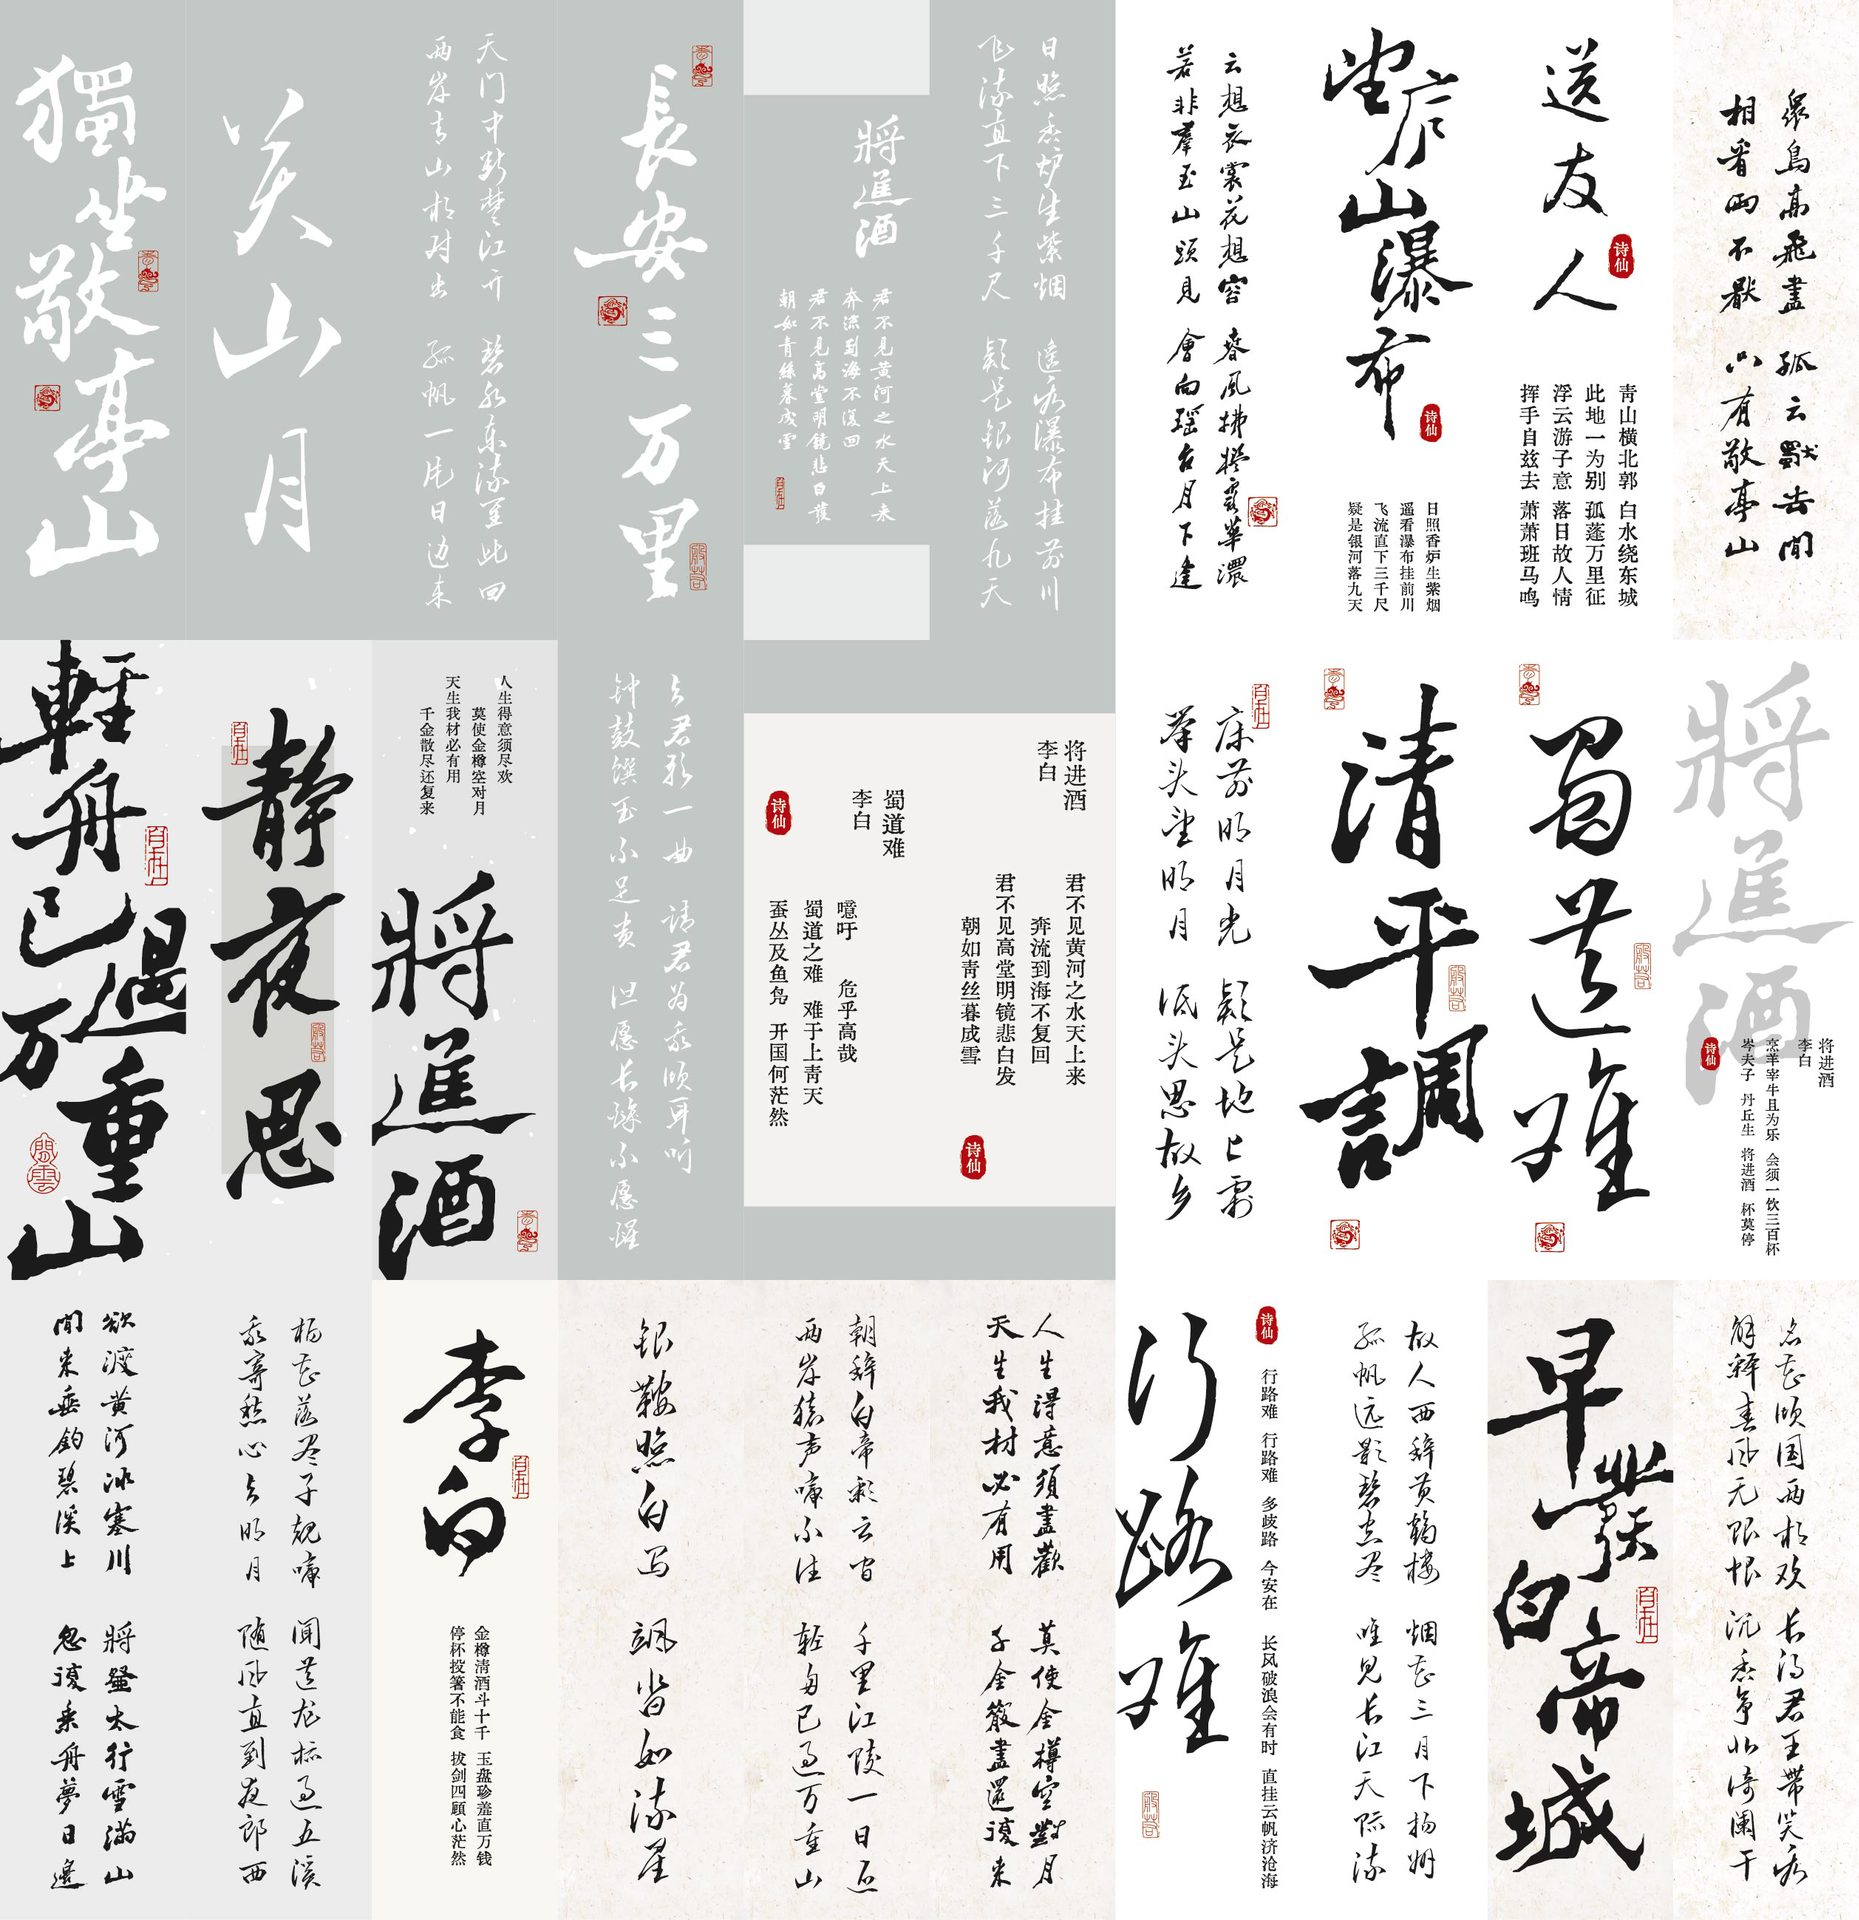 獨坐敬亭山
关山月
天门中断楚江开 碧水东流至此回
两岸青山相对出 孤帆一片日边来
長安三万里
將進酒
君不见黄河之水天上来
奔流到海不復回
君不见高堂明镜悲白髮
朝如青絲暮成雪
日照香炉生紫烟 遥看瀑布挂前川
飞流直下三千尺 疑是银河落九天
云想衣裳花想容 春風拂檻露華濃
若非羣玉山頭見 會向瑶台月下逢
望庐山瀑布
诗仙
日照香炉生紫烟
遥看瀑布挂前川
飞流直下三千尺
疑是银河落九天
送友人
诗仙
青山横北郭 白水绕东城
此地一为别 孤蓬万里征
浮云游子意 落日故人情
挥手自兹去 萧萧班马鸣
眾鳥高飛盡 孤云獨去閒
相看两不厭 只有敬亭山
輕舟已過万重山
静夜思
人生得意须尽欢
莫使金樽空对月
天生我材必有用
千金散尽还复来
將進酒
与君歌一曲 请君为我倾耳听
钟鼓馔玉不足贵 但愿长醉不愿醒
蜀道难
李白
噫吁 危乎高哉
蜀道之难 难于上青天
蚕丛及鱼凫 开国何茫然
诗仙
将进酒
李白
君不见黄河之水天上来
奔流到海不复回
君不见高堂明镜悲白发
朝如青丝暮成雪
诗仙
床前明月光 疑是地上霜
举头望明月 低头思故乡
清平調
蜀道难
將進酒
将进酒
李白
烹羊宰牛且为乐 会须一饮三百杯
岑夫子 丹丘生 将进酒 杯莫停
诗仙
欲渡黄河冰塞川 將登太行雪滿山
閒来垂釣碧溪上 忽復乘舟夢日邊
杨花落尽子规啼 闻道龙标过五溪
我寄愁心与明月 随风直到夜郎西
李白
金樽清酒斗十千 玉盘珍羞直万钱
停杯投箸不能食 拔剑四顾心茫然
银鞍照白马 飒沓如流星
朝辞白帝彩云间 千里江陵一日还
两岸猿声啼不住 轻舟已过万重山
人生得意須盡歡 莫使金樽空對月
天生我材必有用 千金散盡還復来
行路难
诗仙
行路难 行路难 多歧路 今安在 长风破浪会有时 直挂云帆济沧海
故人西辞黄鹤楼 烟花三月下扬州
孤帆远影碧空尽 唯见长江天际流
早發白帝城
名花倾国两相欢 长得君王带笑看
解释春风无限恨 沉香亭北倚阑干